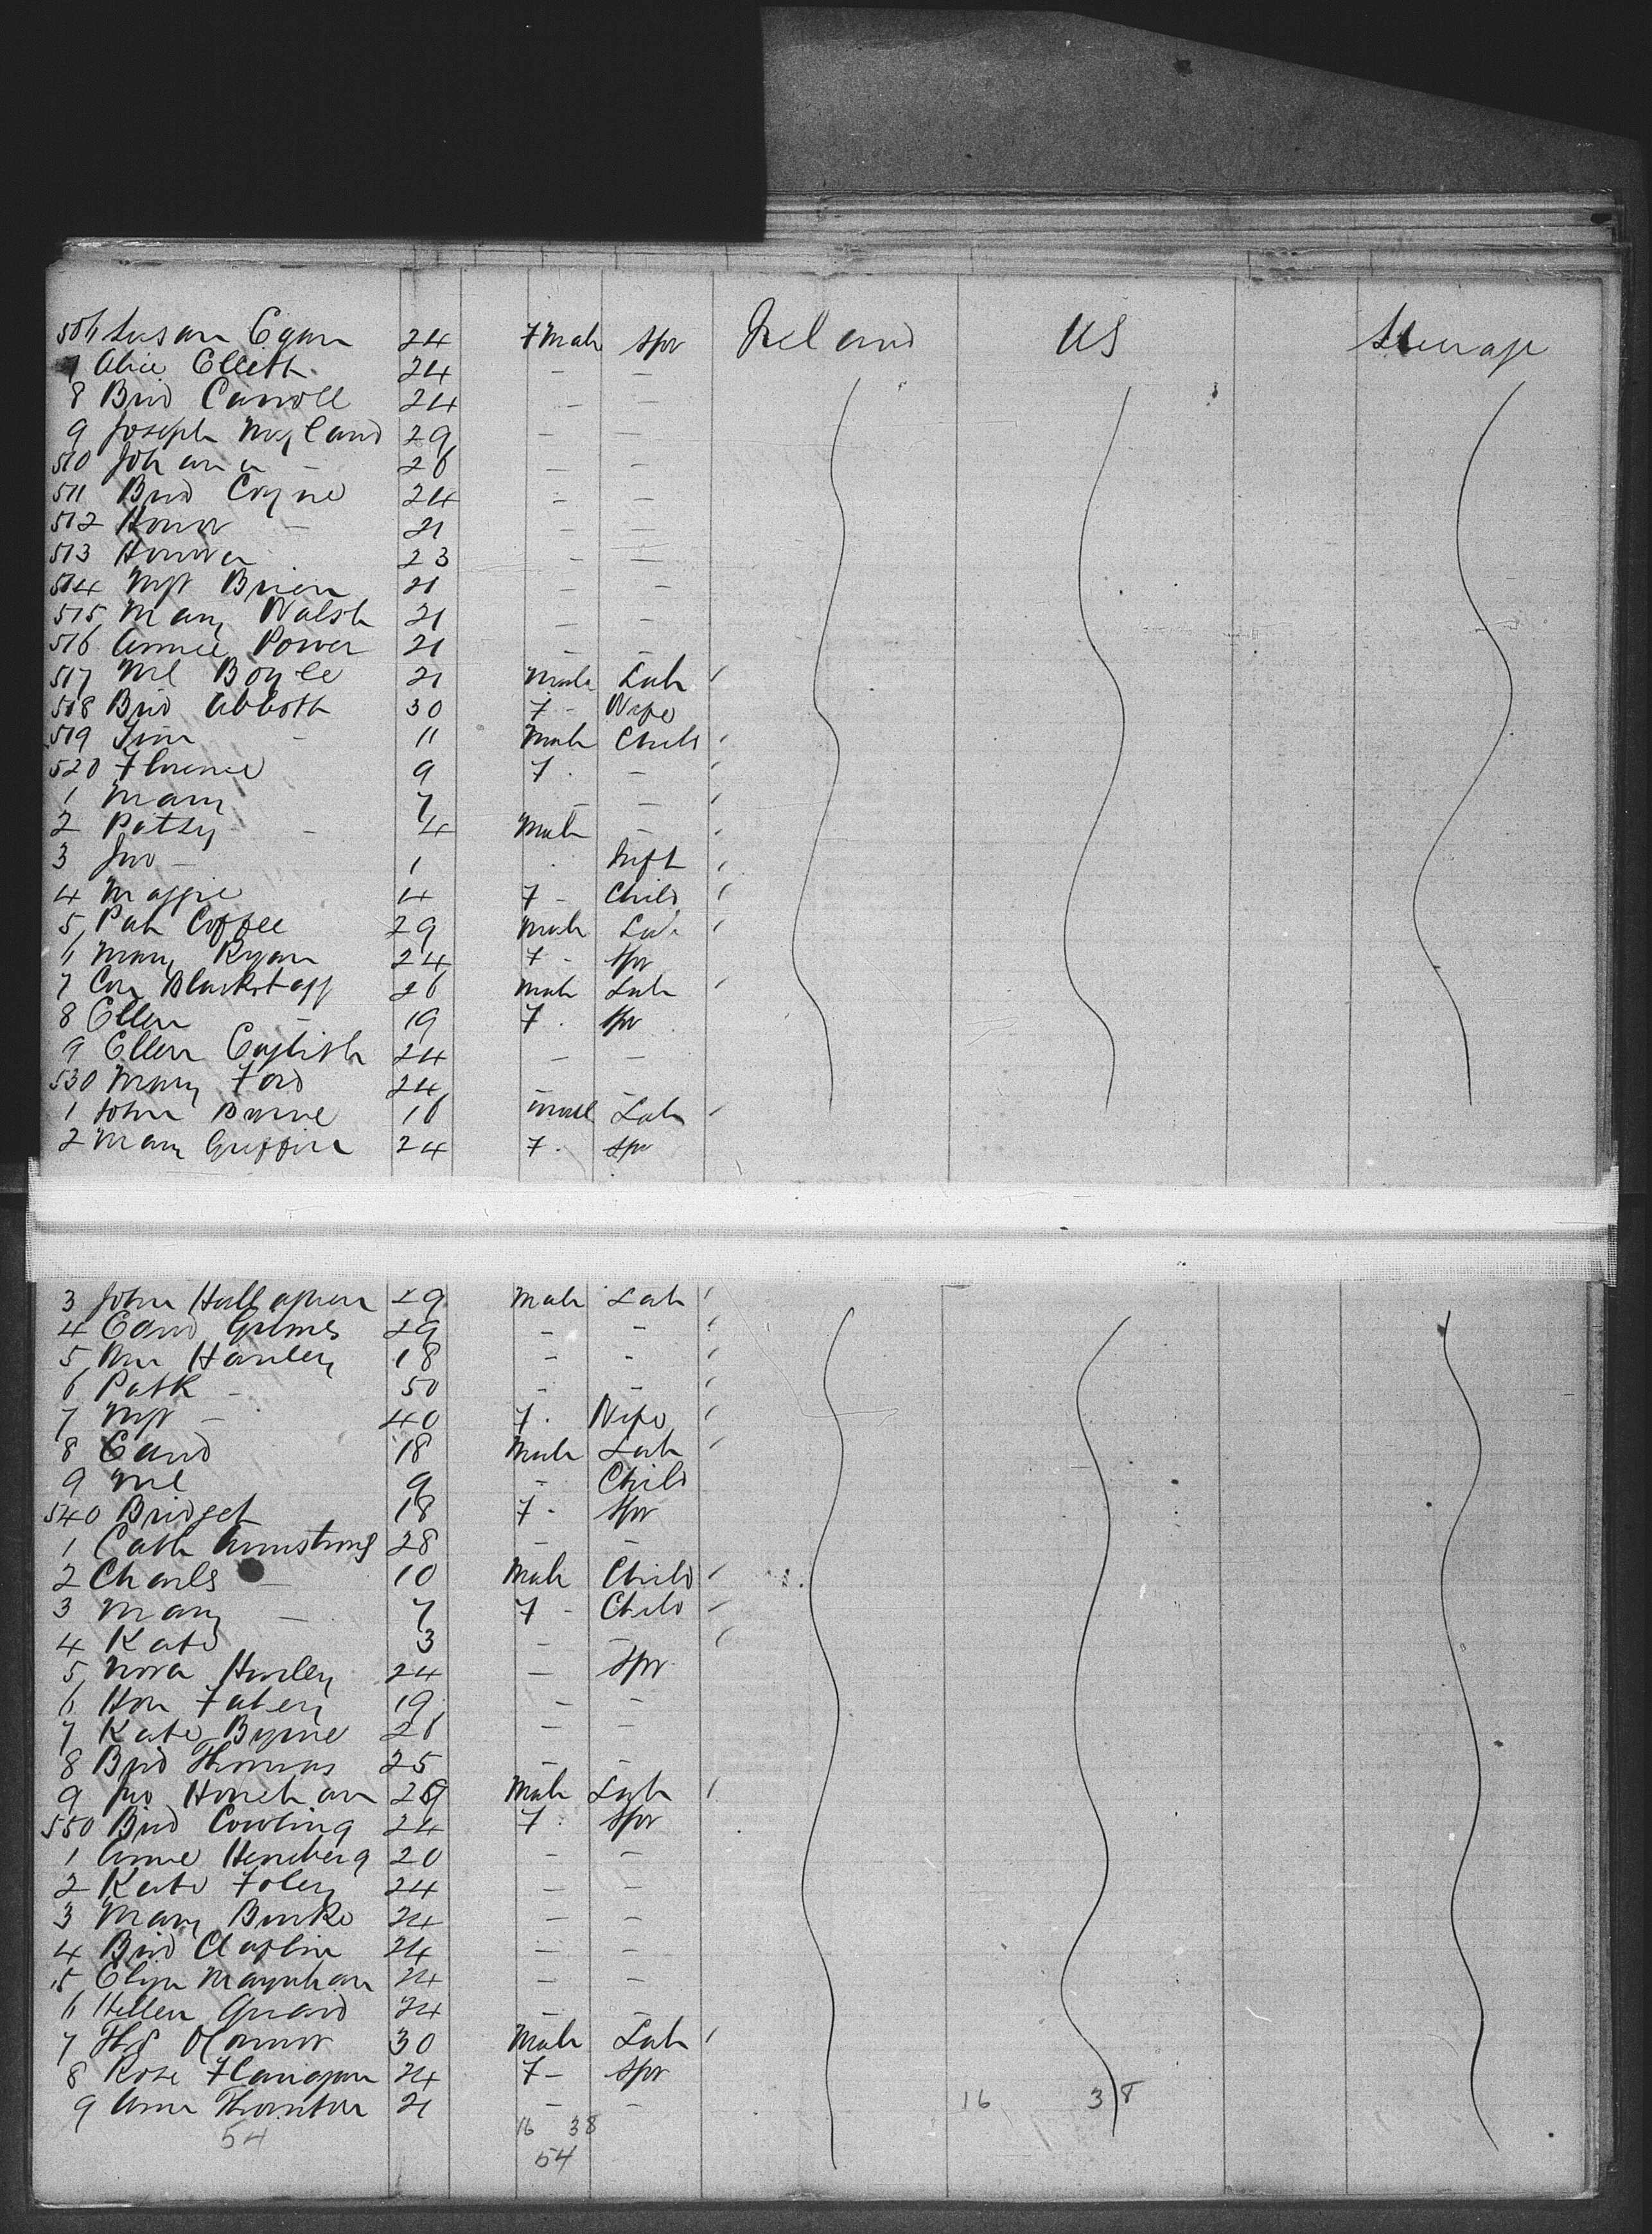 506 Susan Egan 24 Fmale Spr Ireland US Steerage
7 Alice Elliott 24 - -
8 Brid Carroll 24 - -
9 Joseph Mayland 29 - -
510 Johana - 26 - -
511 Brid Coyne 24 - -
512 Honor - 21 - -
513 Honora 23 - -
514 Mgt Brien 21 - -
515 Mary Walsh 21 - -
516 Annie Power 21 - -
517 Ml Boyle 21 Male Lab
518 Brid Abbott 30 F - Wife
519 Jim - 11 Male Child
520 Florence 9 F - -
1 Mary 7 - -
2 Patsy - 4 Male -
3 Jno - 1 Inft
4 Maggie 4 F - Child
5 Pat Coffee 29 Male Lab
6 Mary Ryan 24 F - Spr
7 Con Blackstaff 26 Male Lab
8 Ellen - 19 F - Spr
9 Ellen English 24 - -
530 Mary Ford 24 - -
1 John Byrne 16 Male Lab
2 Mary Griffin 24 F - Spr
3 John Hallahan 29 Male Lab
4 Edwd Grimes 29 - -
5 Wm Hanley 18 - -
6 Patk - 50 - -
7 Mgt - 40 F - Wife
8 Edwd 18 Male Lab
9 Ml 9 - Child
540 Bridget 18 F - Spr
1 Cath Armstrong 28 - -
2 Charls - 10 Male Child
3 Mary - 7 F - Child
4 Kate 3 - -
5 Nora Hurley 24 - Spr
6 Hon Fahey 19 - -
7 Kate Byrne 26 - -
8 Brid Thomas 25 - -
9 Jno Honehan 29 Male Lab
550 Brid Cowling 24 F - Spr
1 Annie Heneberg 20 - -
2 Kate Foley 24 - -
3 Mary Burke 24 - -
4 Brid Claffin 24 - -
5 Eliza Moynihan 24 - -
6 Hellen Guard 24 - -
7 Ths OConnor 30 Male Lab
8 Rose Flanagan 24 F - Spr
9 Ann Thornton 21 - - 16 38
54 16 38
54